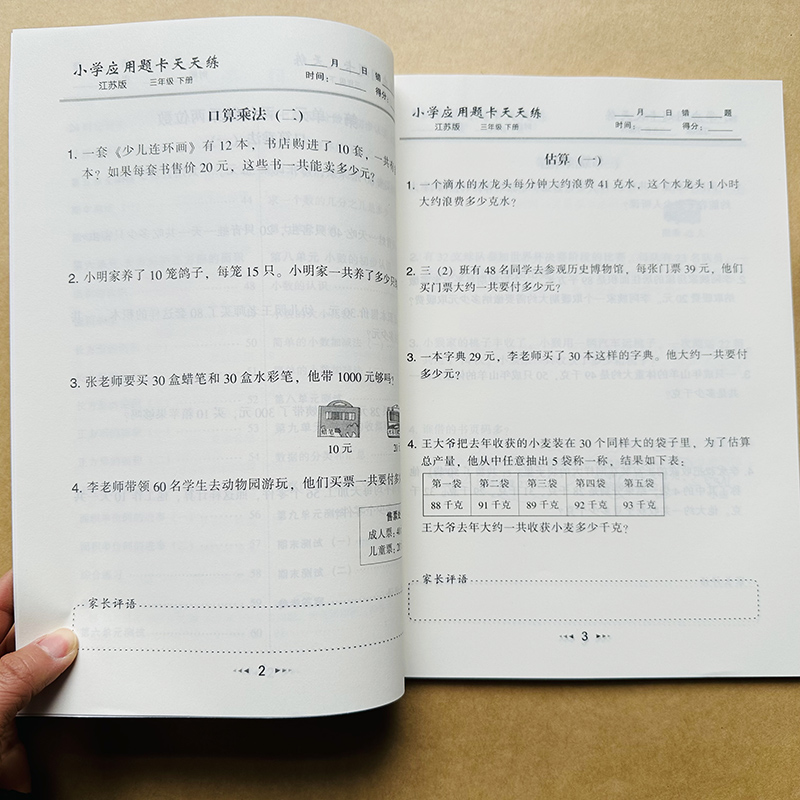 小学应用题卡天天练
江苏版 三年级 下册
月 日 错
时间: 得分:
口算乘法（二）
1. 一套《少儿连环画》有 12 本，书店购进了 10 套，一共有
本？如果每套书售价 20 元，这些书一共能卖多少元？
2. 小明家养了 10 笼鸽子，每笼 15 只。小明家一共养了多少只
3. 张老师要买 30 盒蜡笔和 30 盒水彩笔，他带 1000 元够吗？
10 元
4. 李老师带领 60 名学生去动物园游玩，他们买票一共要付多
售票
成人票：
儿童票：
家长评语
2
小学应用题卡天天练
江苏版 三年级 下册
月 日 错 题
时间: 得分:
估算（一）
1. 一个滴水的水龙头每分钟大约浪费 41 克水，这个水龙头 1 小时
大约浪费多少克水？
2. 三（2）班有 48 名同学去参观历史博物馆，每张门票 39 元，他们
买门票大约一共要付多少元？
3. 一本字典 29 元，李老师买了 30 本这样的字典。他大约一共要付
多少元？
4. 王大爷把去年收获的小麦装在 30 个同样大的袋子里，为了估算
总产量，他从中任意抽出 5 袋称一称，结果如下表：
第一袋 第二袋 第三袋 第四袋 第五袋
88 千克 91 千克 89 千克 92 千克 93 千克
王大爷去年大约一共收获小麦多少千克？
家长评语
3